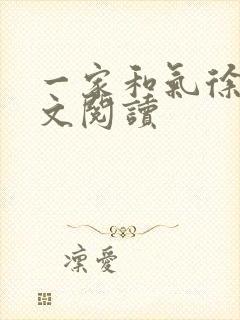 一家和氣徐
文閱讀
凜愛